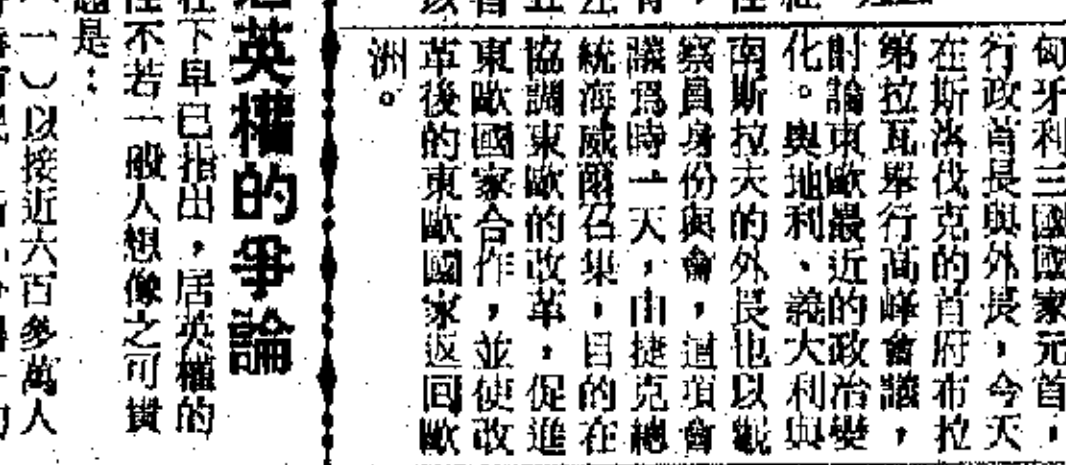 匈牙利三國國家元首，
行政首長與外長，今天
在斯洛伐克的首府布拉
第拉瓦舉行高峰會議，
討論東歐最近的政治變
化。奧地利、義大利與
南斯拉夫的外長也以觀
察員身份與會，這項會
議爲時一天，由捷克總
統海威爾召集，目的在
協調東歐的改革，促進
東歐國家合作，並使改
革後的東歐國家返回歐
洲。
英權的爭論
在下早已指出，居英權的
性不若一般人想像之可貴
題是：
一）以接近六百多萬人